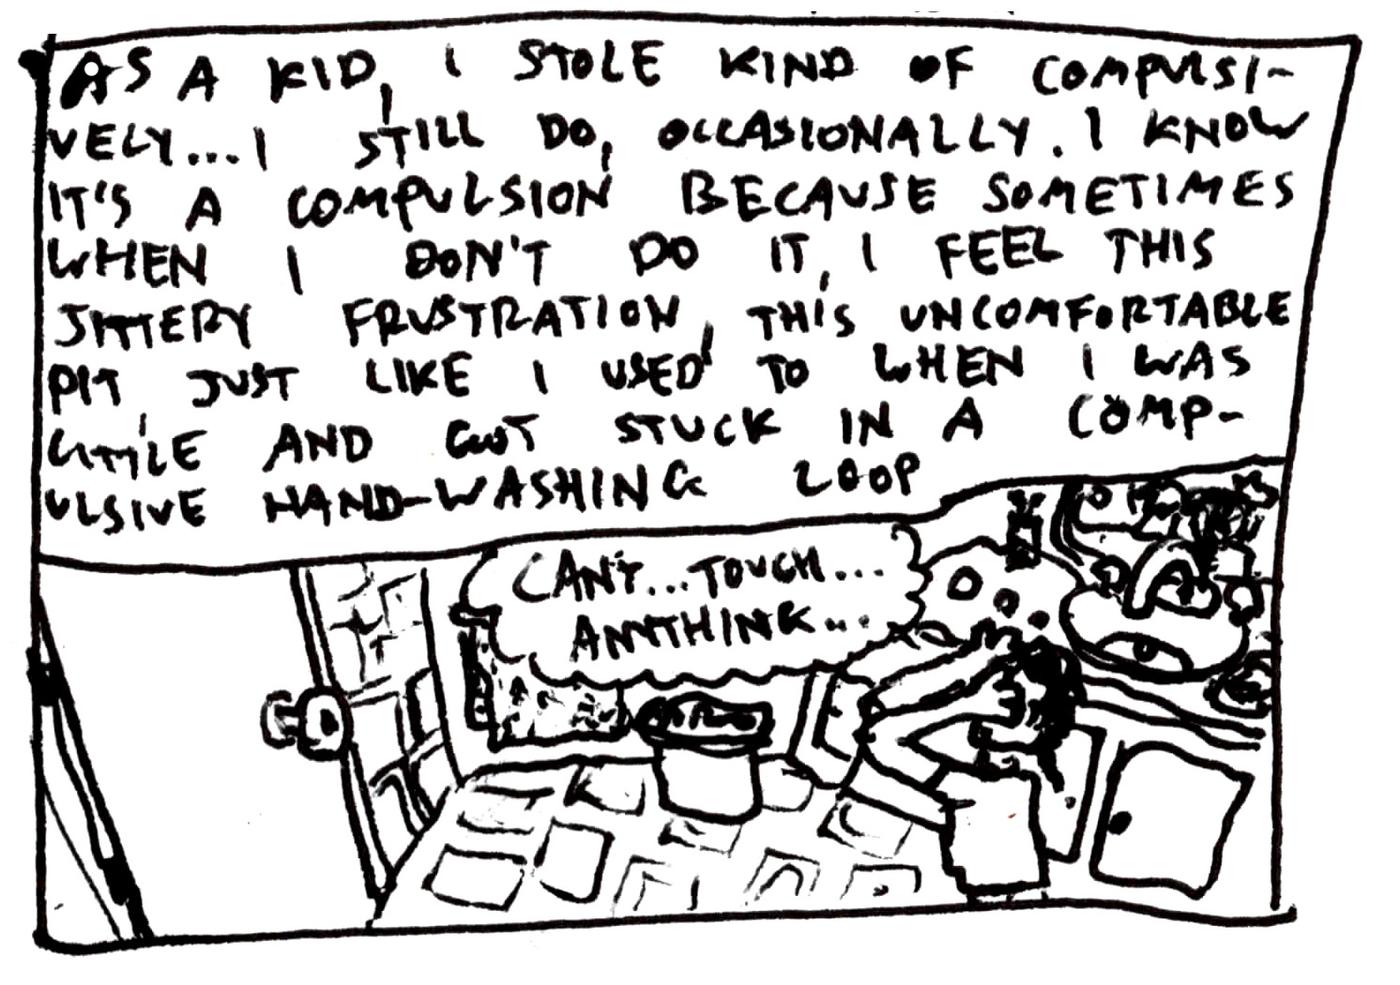 AS A KID, I STOLE KIND OF COMPULSI-
VELY...I STILL DO, OCCASIONALLY. I KNOW
IT'S A COMPULSION BECAUSE SOMETIMES
WHEN I DON'T DO IT, I FEEL THIS
JITTERY FRUSTRATION, THIS UNCOMFORTABLE
PIT, JUST LIKE I USED TO WHEN I WAS
LITTLE AND GOT STUCK IN A COMP-
ULSIVE HAND-WASHING LOOP
CAN'T...TOUCH...
ANYTHING...